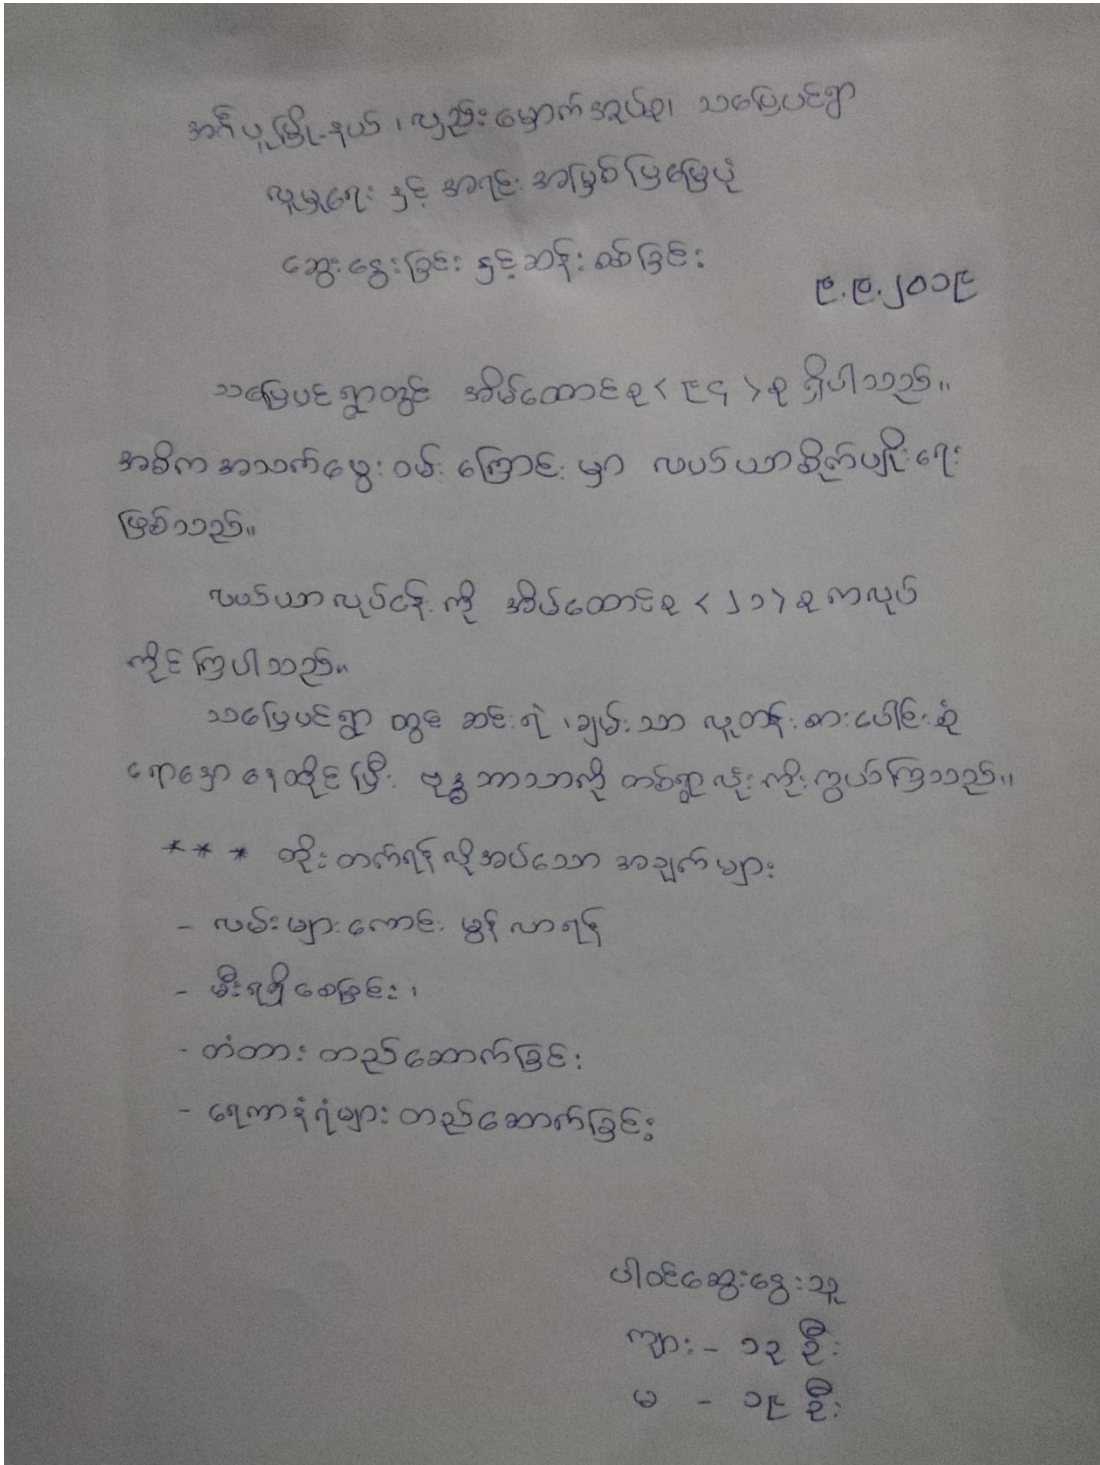 အင်္ဂပူမြို့နယ်၊ လှည်းမှောက်အုပ်စု၊ သမြေ့ပင်ရွာ
လူမှုရေး နှင့် အရင်းအမြစ်ပြမြေပုံ
ဆွေးနွေးခြင်း နှင့် ဆန်းစစ်ခြင်း
၉.၉.၂၀၁၉
သမြေ့ပင်ရွာတွင် အိမ်ထောင်စု < ၉၄ > စု ရှိပါသည်။
အဓိက အသက်မွေးဝမ်းကြောင်းမှာ လယ်ယာစိုက်ပျိုးရေး
ဖြစ်သည်။
လယ်ယာလုပ်ငန်းကို အိမ်ထောင်စု < ၂၁ > စု ကလုပ်
ကိုင်ကြပါသည်။
သမြေ့ပင်ရွာတွင် ဆင်းရဲ၊ ချမ်းသာ လူတန်းစားပေါင်းစုံ
ရောနှောနေထိုင်ပြီး ဗုဒ္ဓဘာသာကို တစ်ရွာလုံးကိုးကွယ်ကြသည်။
*** တိုးတက်ရန်လိုအပ်သော အချက်များ
- လမ်းများကောင်းမွန်လာရန်
- မီးရရှိစေခြင်း၊
- တံတားတည်ဆောက်ခြင်း
- ရေကာနံရံများတည်ဆောက်ခြင်း
ပါဝင်ဆွေးနွေးသူ
ကျား - ၁၃ ဦး
မ - ၁၉ ဦး